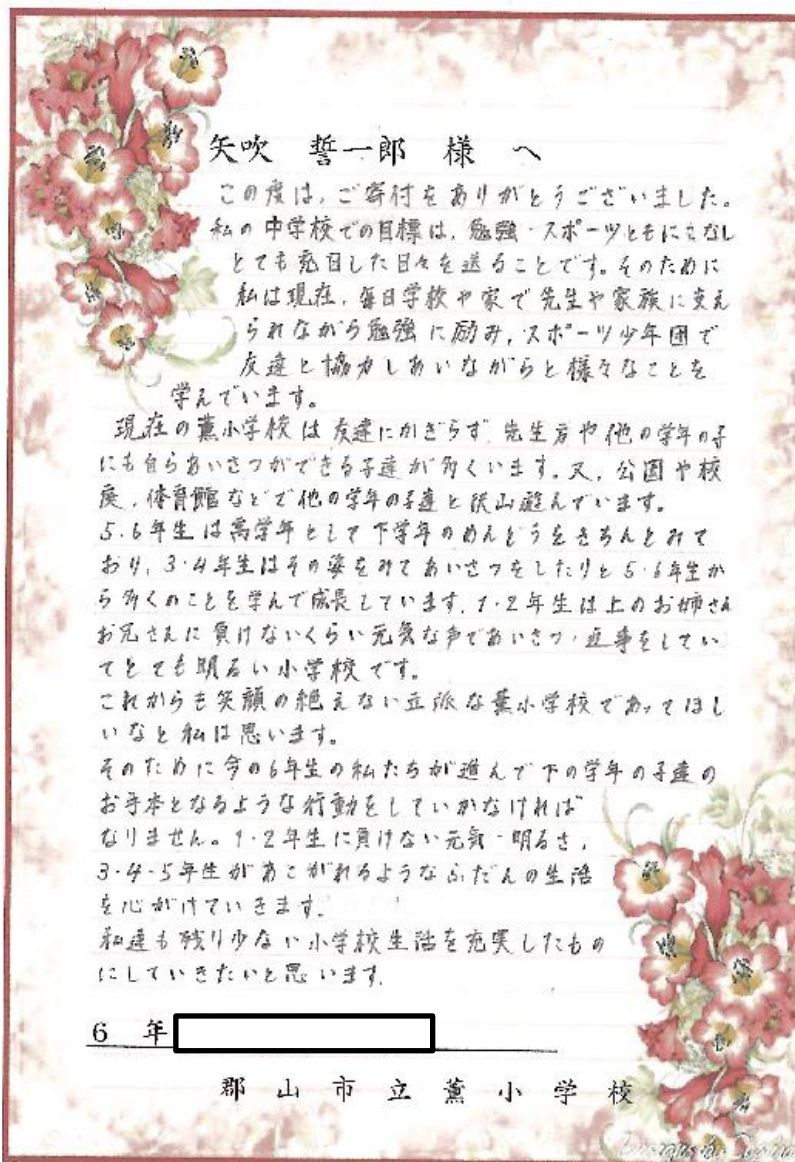 矢吹 誓一郎 様 へ
この度は、ご寄付をありがとうございました。
私の中学校での目標は、勉強・スポーツともにこなし
とても充日した日々を送ることです。そのために
私は現在、毎日学校や家で先生や家族に支え
られながら勉強に励み、スポーツ少年団で
友達と協力しあいながらと様々なことを
学んでいます。
現在の薫小学校は友達にかぎらず、先生方や他の学年の子
にも自らあいさつができる子達が多くいます。又、公園や校
庭、体育館などで他の学年の子達と沢山遊んでいます。
5・6年生は高学年として下学年のめんどうをきちんとみて
おり、3・4年生はその姿をみてあいさつをしたりと5・6年生か
ら多くのことを学んで成長しています。1・2年生は上のお姉さん
お兄さんに負けないくらい元気な声であいさつ・返事をしてい
てとても明るい小学校です。
これからも笑顔の絶えない立派な薫小学校であってほし
いなと私は思います。
そのために今の6年生の私たちが進んで下の学年の子達の
お手本となるような行動をしていかなければ
なりません。1・2年生に負けない元気・明るさ、
3・4・5年生があこがれるようなふだんの生活
を心がけていきます。
私達も残り少ない小学校生活を充実したもの
にしていきたいと思います。
6 年
郡山市立薫小学校